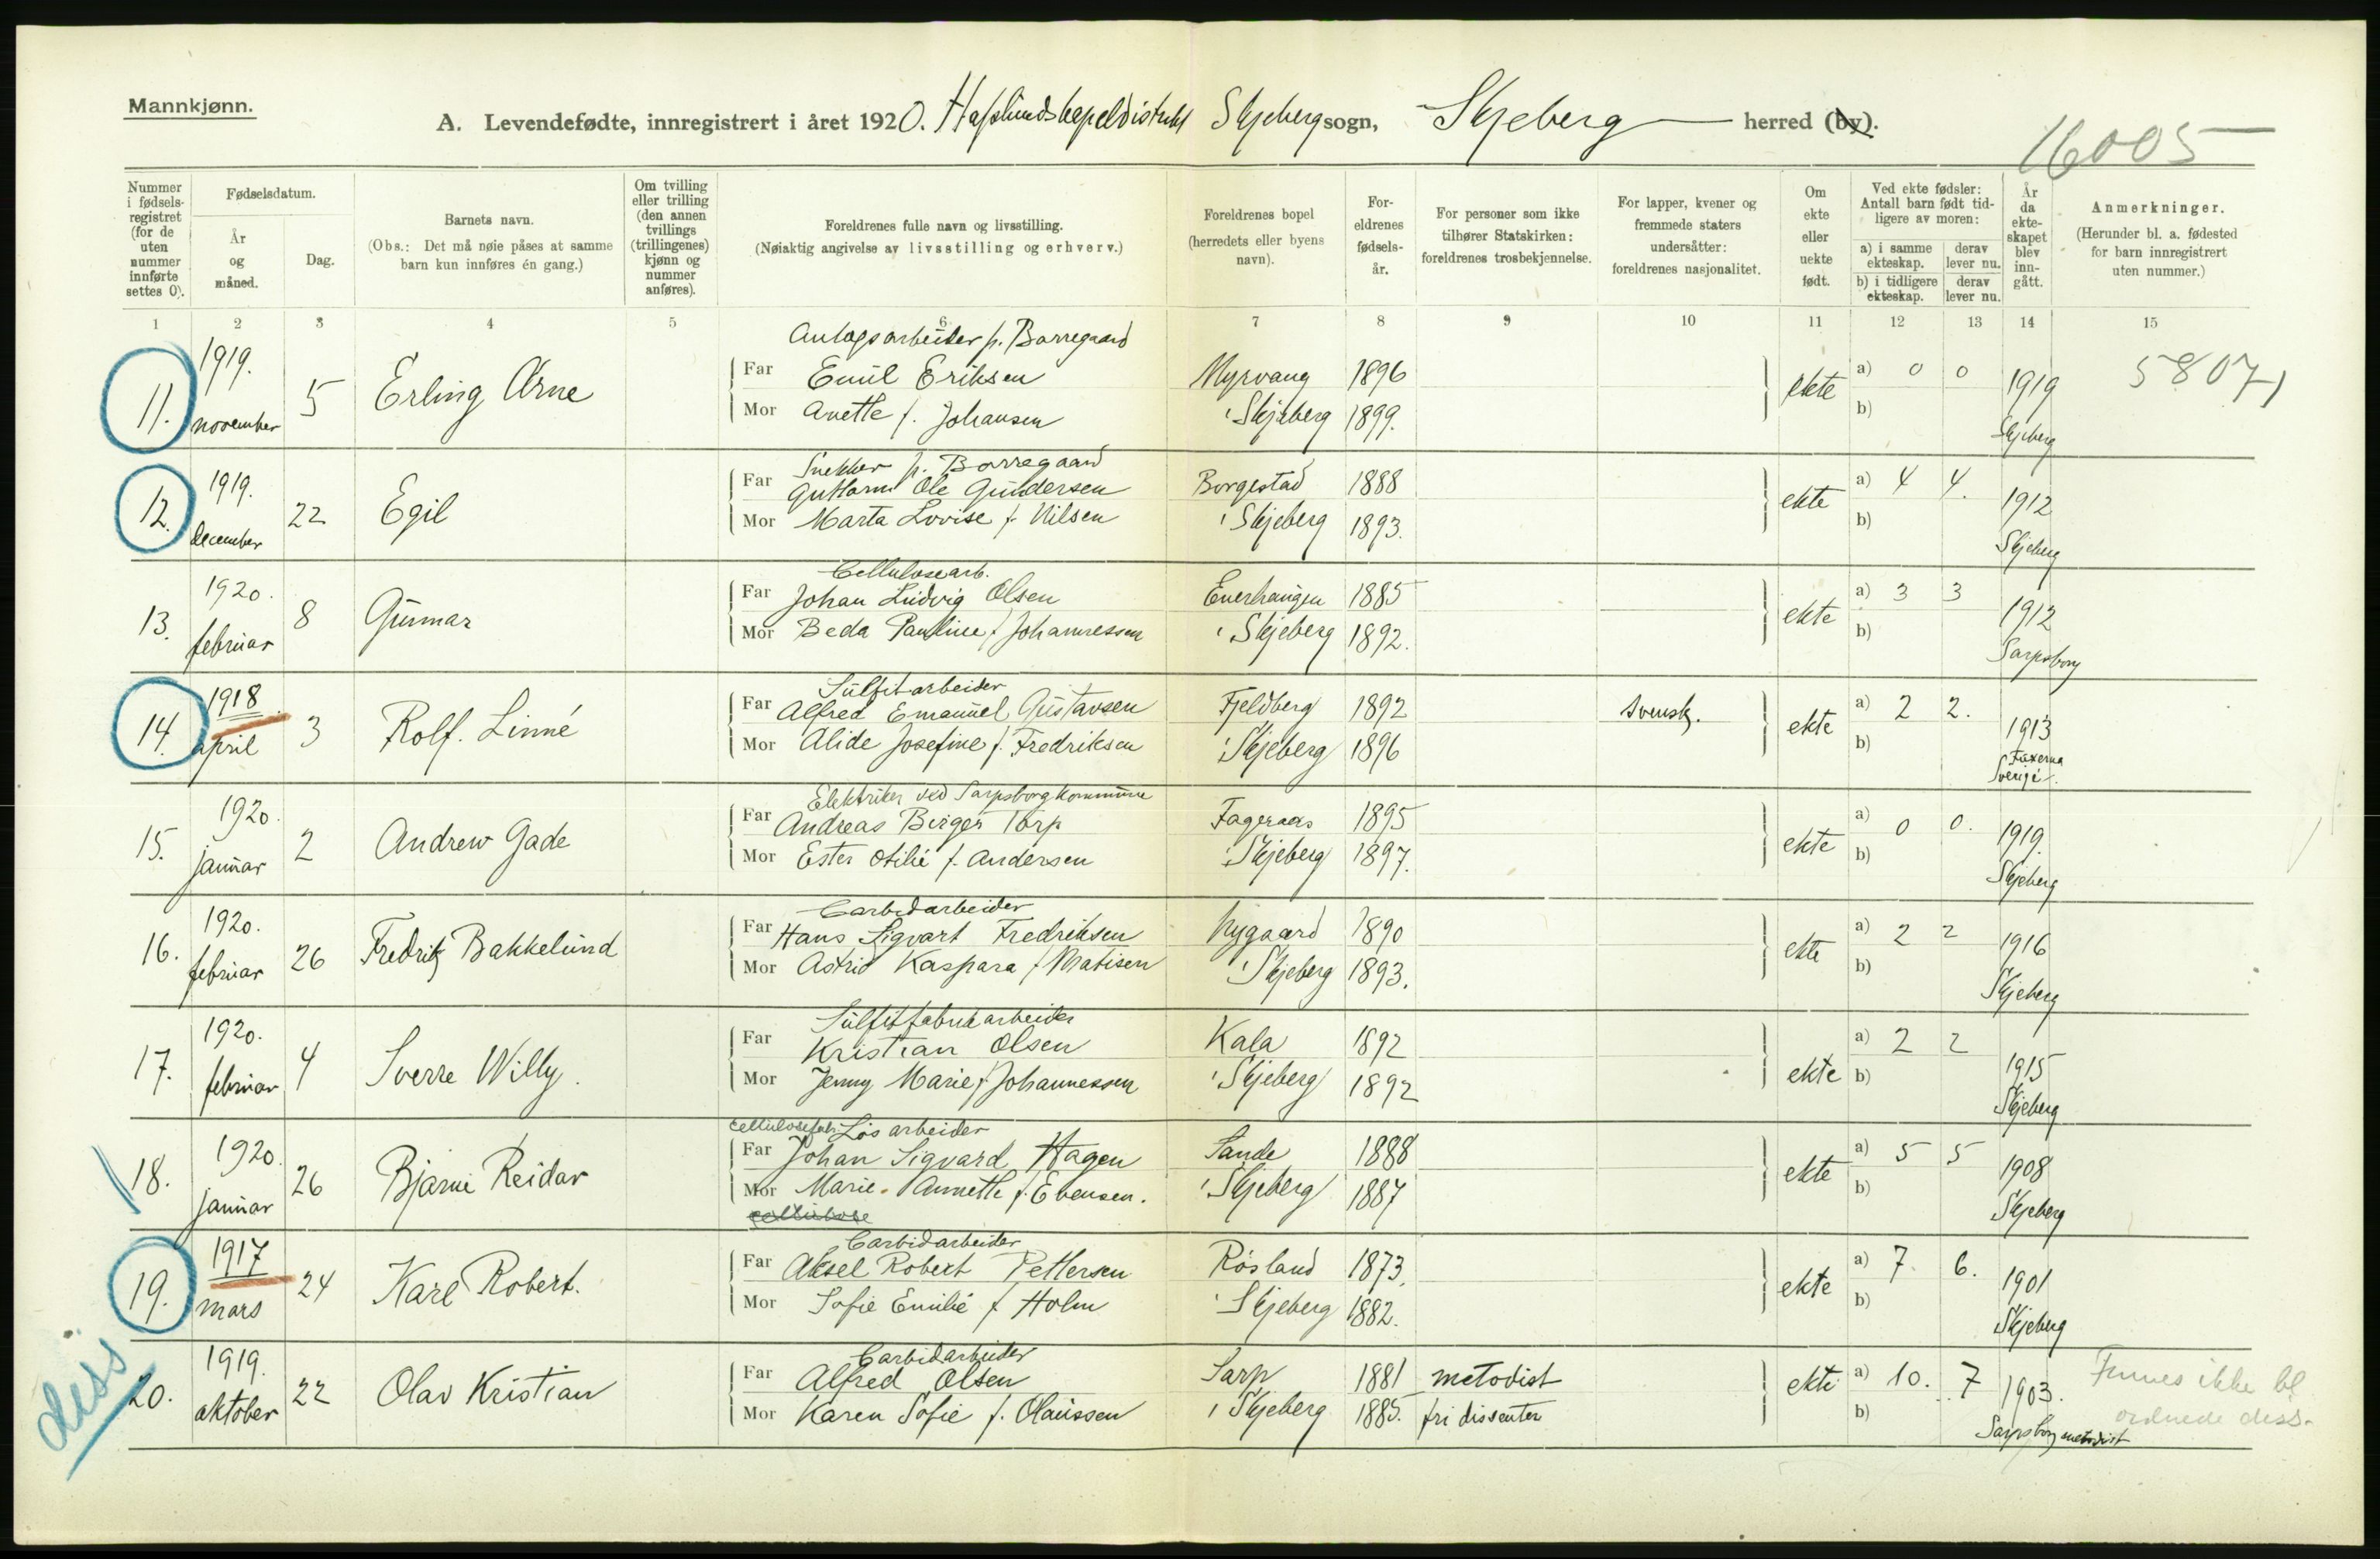 Mannkjønn.
A. Levendefødte, innregistrert i året 1920. Hafslunds kapeldistrikt Skjeberg sogn, Skjeberg herred (by).
16005
Nummer i fødselsregistret (for de uten nummer innførte settes 0).
Fødselsdatum.
År og måned.
Dag.
Barnets navn.
(Obs.: Det må nøie påses at samme barn kun innføres én gang.)
Om tvilling eller trilling (den annen tvillings (trillingenes) kjønn og nummer anføres).
Foreldrenes fulle navn og livsstilling.
(Nøiaktig angivelse av livsstilling og erhverv.)
Foreldrenes bopel (herredets eller byens navn).
Foreldrenes fødselsår.
For personer som ikke tilhører Statskirken: foreldrenes trosbekjennelse.
For lapper, kvener og fremmede staters undersåtter: foreldrenes nasjonalitet.
Om ekte eller uekte født.
Ved ekte fødsler: Antall barn født tidligere av moren:
a) i samme ekteskap. derav lever nu.
b) i tidligere ekteskap. derav lever nu.
År da ekteskapet blev inngått.
Anmerkninger.
(Herunder bl. a. fødested for barn innregistrert uten nummer.)
1 2 3 4 5 6 7 8 9 10 11 12 13 14 15
Anlægsarbeider p. Borregaard
11. 1919. november 5 Erling Arne
Far Emil Eriksen Myrvang 1896 ekte a) 0 0 1919 58071
Mor Anette f. Johansen i Skjeberg 1899. b) Skjeberg
Snekker p. Borregaard
12. 1919. december 22 Egil
Far Guttorm Ole Gundersen Borgestad 1888 ekte a) 4 4. 1912
Mor Marta Lovise f. Nilsen i Skjeberg 1893. b) Skjeberg
Cellulosearb.
13. 1920. februar 8 Gunnar
Far Johan Ludvig Olsen Enerhaugen 1885 ekte a) 3 3 1912
Mor Beda Pauline f. Johannessen i Skjeberg 1892. b) Sarpsborg
Sulfitarbeider
14. 1918 april 3 Rolf. Linné
Far Alfred Emanuel Gustavsen Fjeldberg 1892 svensk. ekte a) 2 2. 1913
Mor Alide Josefine f. Fredriksen i Skjeberg 1896 b) Fuxerna Sverige.
Elektriker ved Sarpsborg kommune
15. 1920. januar 2 Andrew Gade
Far Andreas Birger Torp Fageraas 1895 ekte a) 0 0. 1919.
Mor Ester Otilie f. Andersen i Skjeberg 1897. b) Skjeberg
Carbidarbeider
16. 1920. februar 26 Fredrik Bakkelund
Far Hans Sigvart Fredriksen Nygaard 1890 ekte a) 2 2 1916
Mor Astrid Kaspara f. Matisen i Skjeberg 1893. b) Skjeberg
Sulfitfabrikarbeider
17. 1920. februar 4 Sverre Willy.
Far Kristian Olsen Kala 1892 ekte a) 2 2 1915
Mor Jenny Marie f. Johannessen i Skjeberg 1892 b) Skjeberg
cellulosefabr. Løsarbeider
18. 1920. januar 26 Bjarne Reidar
Far Johan Sigvard Hagen Sande 1888 ekte a) 5 5 1908
Mor Marie Annette f. Evensen. i Skjeberg 1887 b) Skjeberg
cellulose
Carbidarbeider
19. 1917 mars 24 Karl Robert.
Far Aksel Robert Pettersen Røsland 1873. ekte a) 7. 6. 1901
Mor Sofie Emilie f. Holm i Skjeberg 1882. b) Skjeberg
Carbidarbeider
diss
20. 1919. oktober 22 Olav Kristian
Far Alfred Olsen Sarp 1881 metodist ekte a) 10. 7 1903. Finnes ikke bl ordnede diss.
Mor Karen Sofie f. Olaussen i Skjeberg 1885. fri dissenter b) Sarpsborg metodist